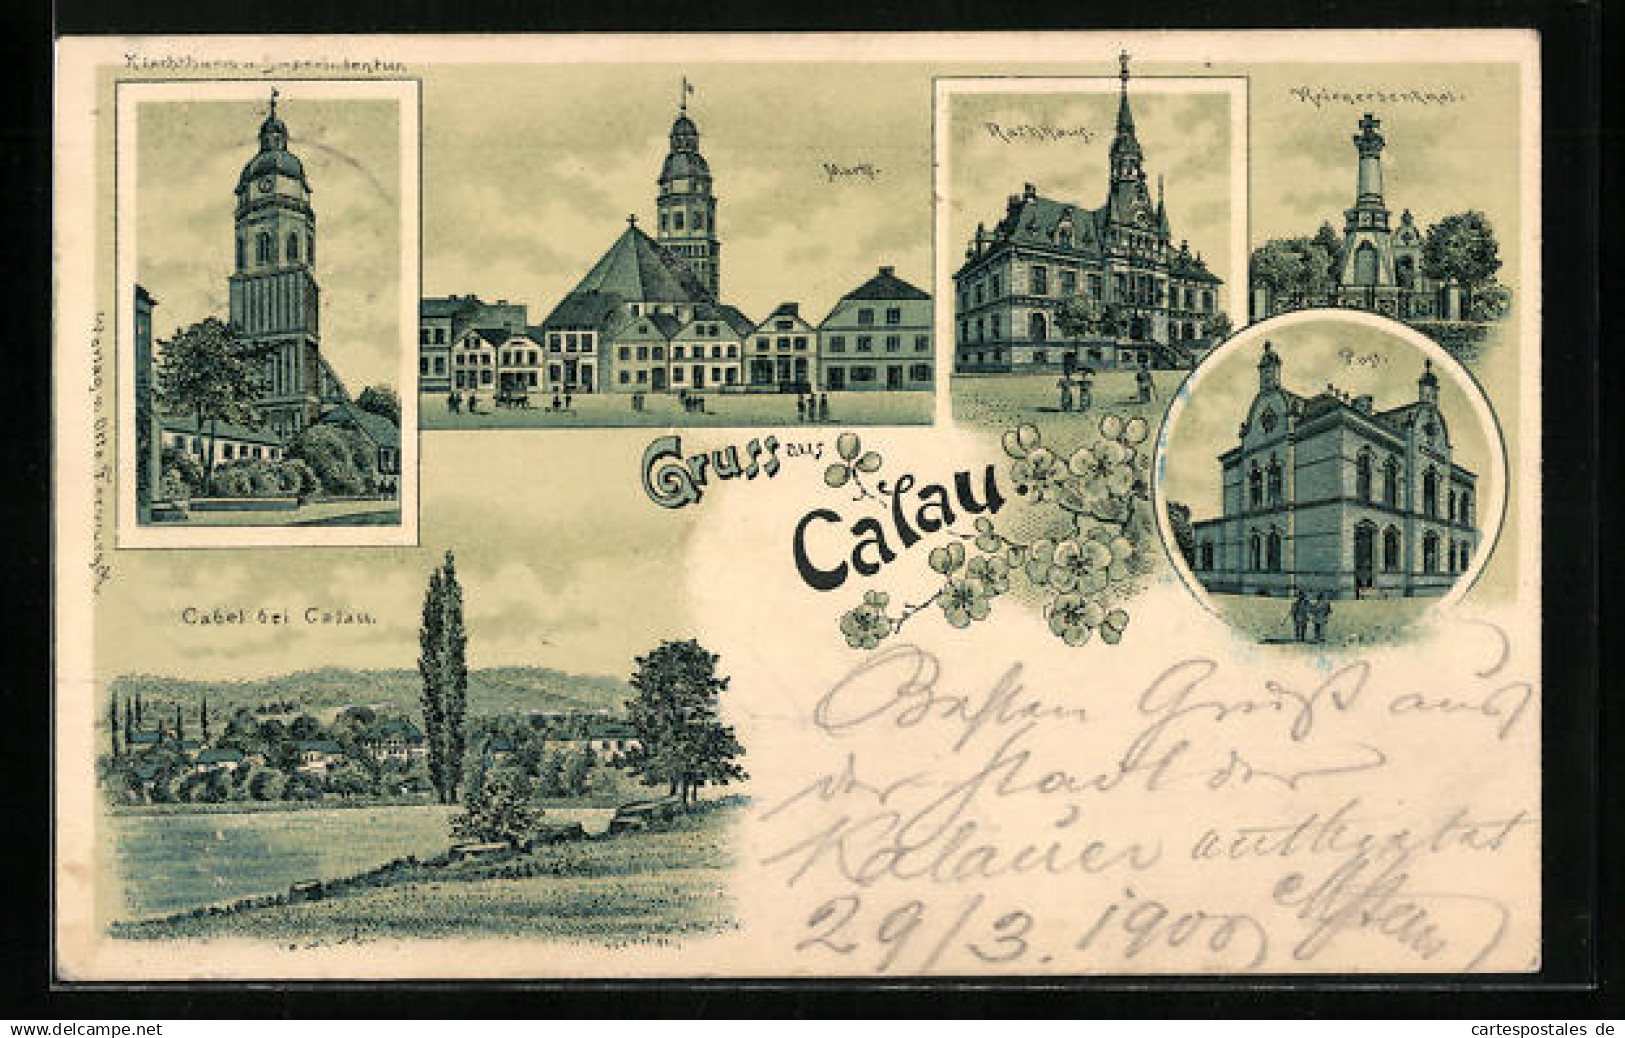 Kirchthurm u. Superintendentur.
Markt.
Rathhaus.
Kriegerdenkmal.
Post.
Gruss aus
Calau.
Cabel bei Calau.
Verlag v. Otto
Besten Gruß aus
der Stadt der
Kalauer
29/3. 1900
www.delcampe.net
cartespostales de